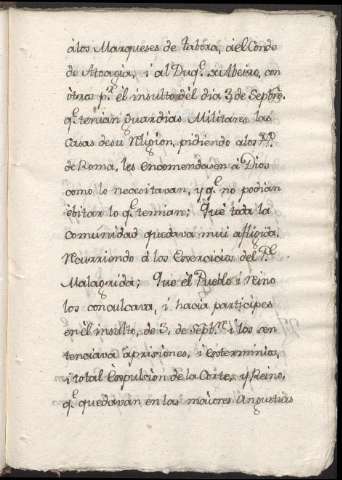 alos Marqueses de Tabora, àel Conde
de Atougia, i al Duq.e de Abeiro, con
òtros p.r el insulto del dia 3 de Septbre.
q.e tenian guardias Militares las
Casas desu Religion, pidiendo alos PP.
de Roma, les encomendasen à Dios
como lo necesitavan, y q.e no podian
èbitar lo q.e temian; Que toda la
comunidad quedava mui afligida,
Recurriendo à los Exercicios del P.e
Malagrida; Que el Pueblo i Reino
los conculcava, i hacia participes
en èl insulto, de 3, de Septb.re i los sen
tenciava aprisiones, i èxterminios,
i total Expulsion de la Corte, y Reino,
q.e quedavan en las maiores Angustias